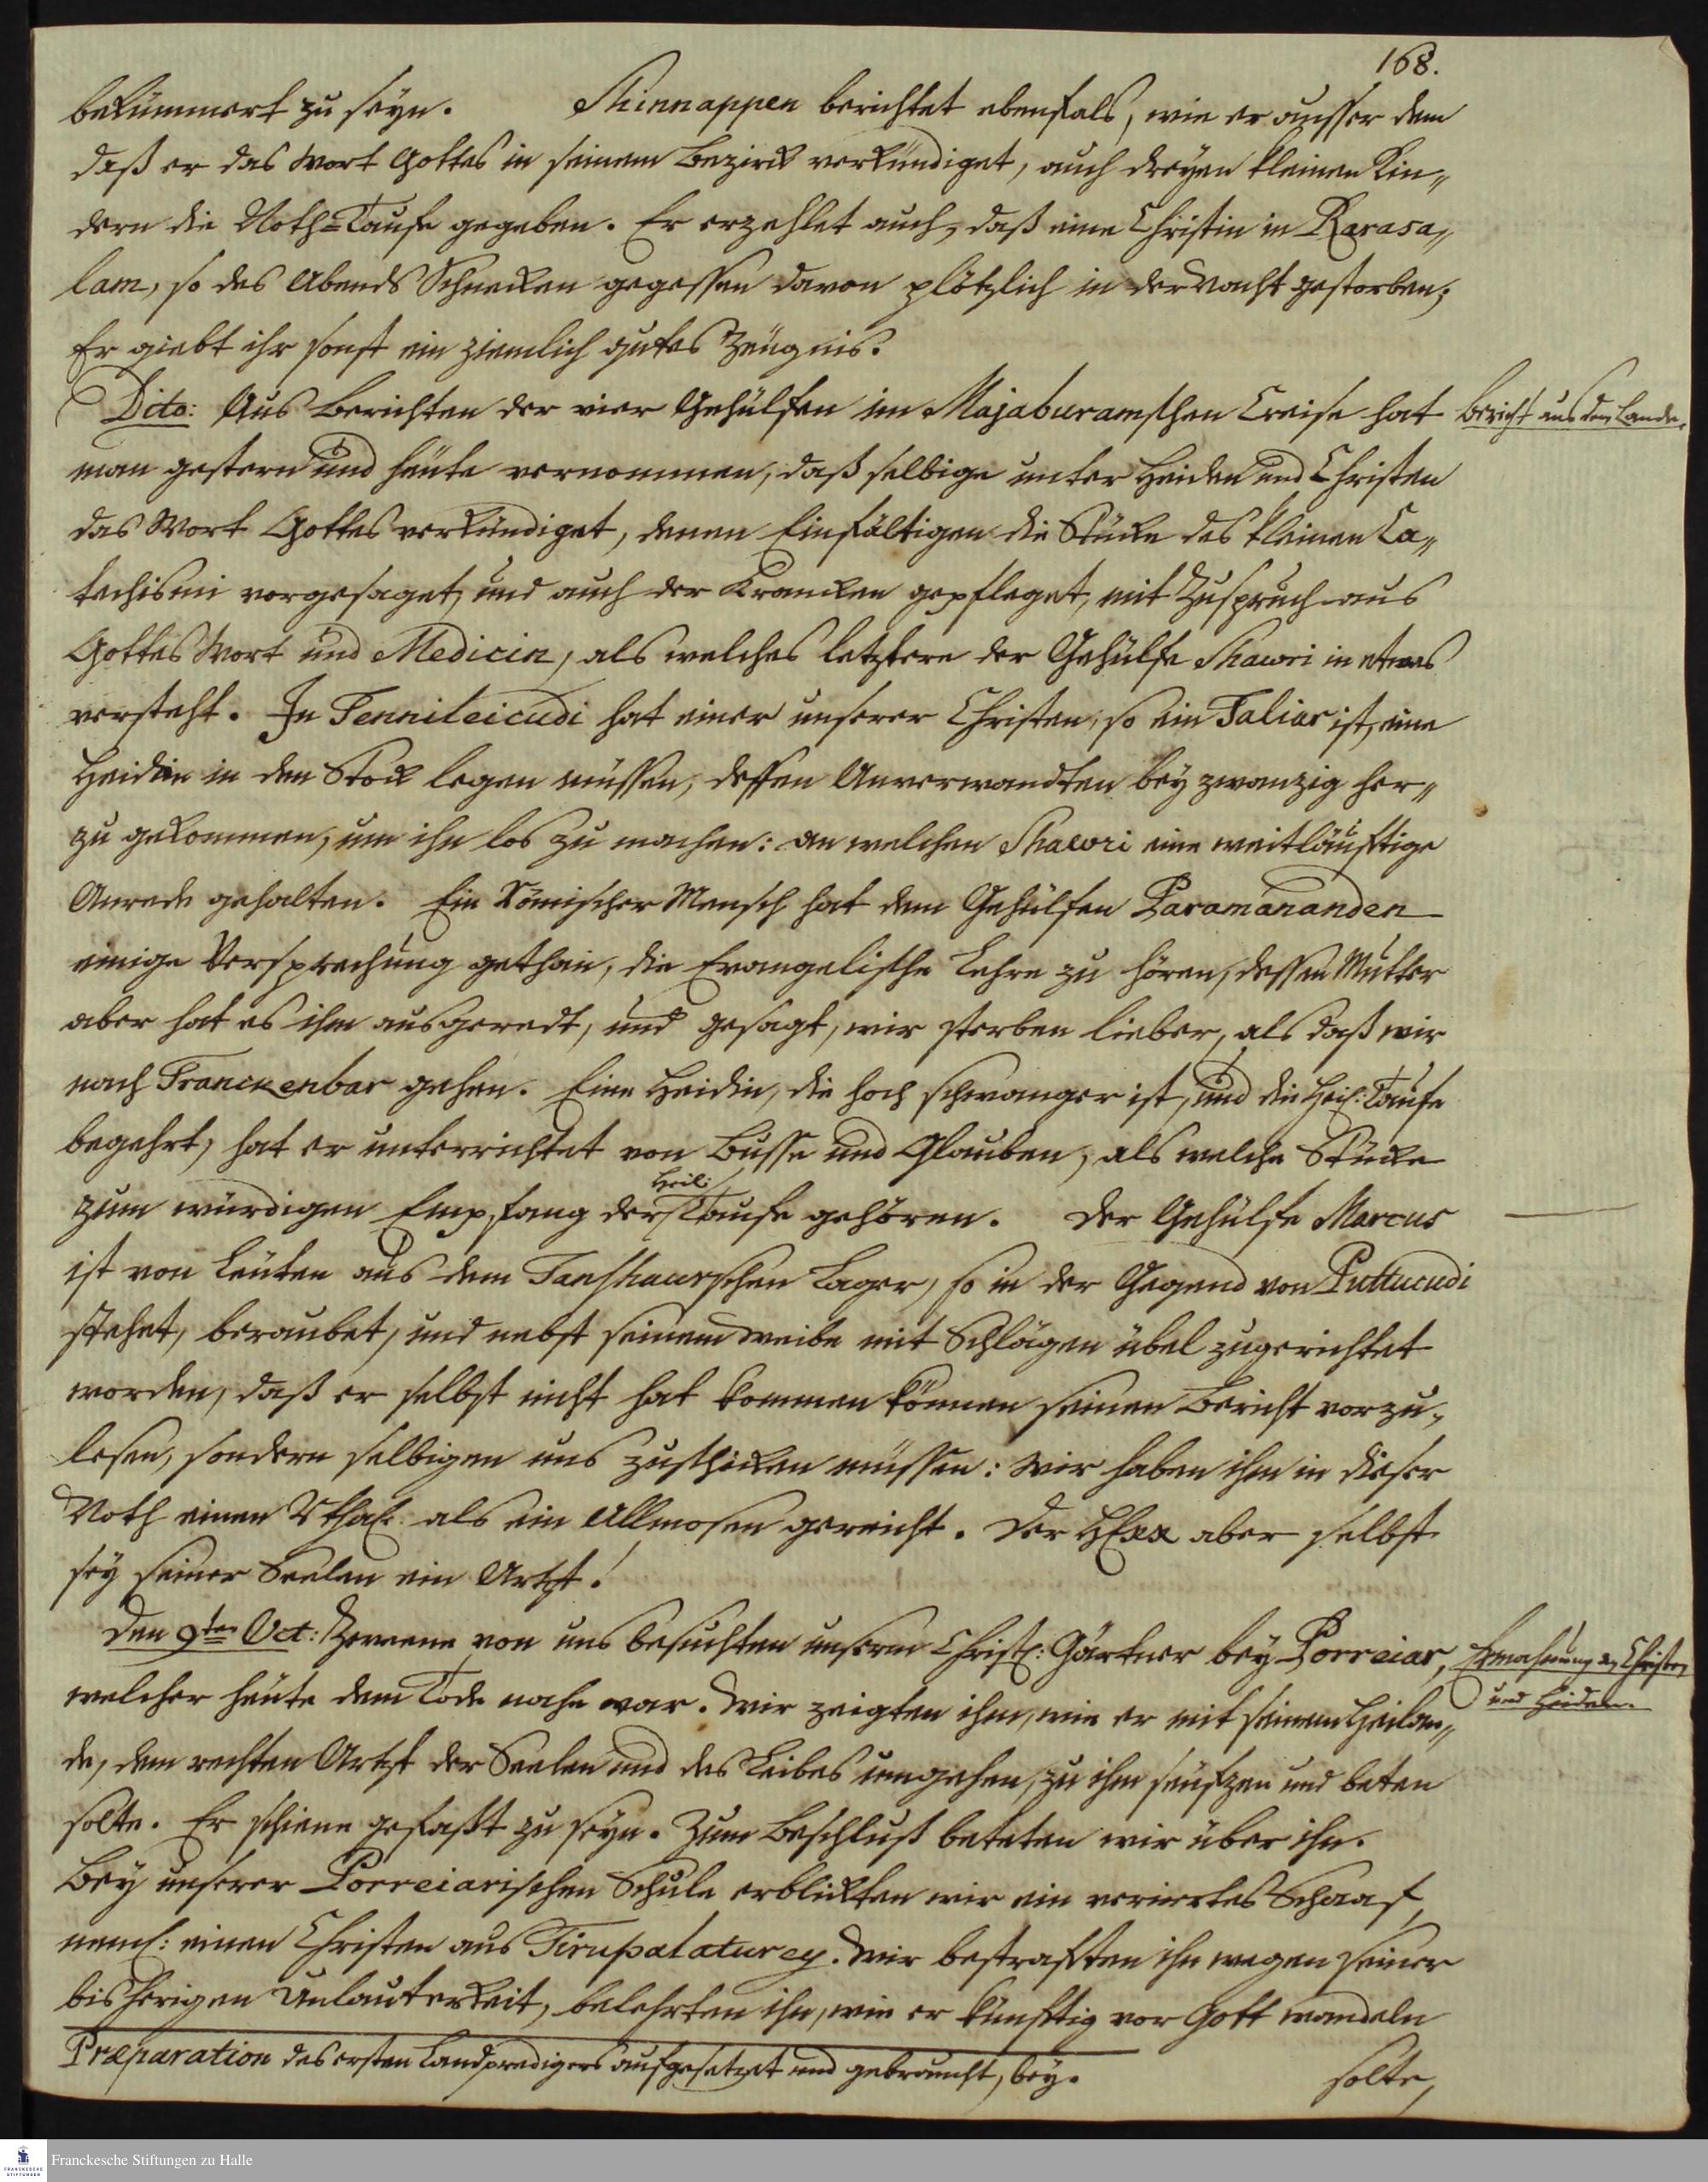 168.
bekümmert zu seyn. Shinnappen berichtet ebenfals, wie er ausser dem
daß er das Wort Gottes in seinem Bezirck verkündiget, auch dreyen kleinen Kin„
dern die Noth=Taufe gegeben. Er erzehlet auch, daß eine Christin in Karasa„
lam, so des Abends Schnecken gegessen davon plötzlich in der Nacht gestorben;
Er giebt ihr sonst ein ziemlich gutes Zeügnis.
Dito: Aus Berichten der vier Gehülfen im Majaburamschen Creise hat
Bericht aus dem Lande.
man gestern und heüte vernommen, daß selbige unter Heiden und Christen
das Wort Gottes verkündiget, denen Einfältigen die Stücke des kleinen Ca„
techismi vorgesaget, und auch der Krancken gepfleget, mit Zuspruch aus
Gottes Wort und Medicin, als welches letztere der Gehülfe Shawri in etwas
versteht. In Tennileicudi hat einer unserer Christen, so ein Taliar ist, eine
Heidin in den Stock legen müssen, dessen Anverwandten bey zwanzig her„
zu gekommen, um ihn los zu machen: an welchen Shawri eine weitläuftige
Anrede gehalten. Ein Römischer Mensch hat dem Gehülfen Paramananden
einige Versprechung gethan, die Evangelische Lehre zu hören, dessen Mutter
aber hat es ihm ausgeredt, und gesagt, wir sterben lieber, als daß wir
nach Franckenbar gehen. Eine Heidin, die hoch schwanger ist, und die Heil: Taufe
begehrt, hat er unterrichtet von Busse und Glauben, als welche Stücke
zum würdigen Empfang der Heil: Taufe gehören. Der Gehülfe Marcus
ist von Leüten aus dem Tanshaurschen Lager, so in der Gegend von Puttucudi
stehet, beraubet, und nebst seinem Weibe mit Schlägen übel zugerichtet
worden, daß er selbst nicht hat kommen können seinen Bericht vorzu„
lesen, sondern selbigen uns zuschicken müssen: Wir haben ihm in dieser
Noth einen Rthal: als ein Allmosen gereicht. Der HErr aber selbst
sey seiner Seelen ein Artzt!
Den 9ten Oct: Zweene von uns besuchten unsern Christl: Gärtner bey Porreiar,
Ermahnung der Christen
und Heiden.
welcher heüte dem Tode nahe war. Wir zeigten ihm, wie er mit seinem Heilan„
de, dem rechten Artzt der Seelen und des Leibes umgehen, zu ihm seüfzen und beten
solte. Er schiene gefaßt zu seyn. Zum Beschluß beteten wir über ihn.
Bey unserer Porreiarischen Schule erblickten wir ein verirrtes Schaaf,
neml: einen Christen aus Tirupalaturey. Wir bestrafften ihn wegen seiner
bisherigen Unlauterkeit, belehrten ihn, wie er künftig vor Gott wandeln
Præparation des ersten Landpredigers aufgesetzet und gebraucht, bey.
solte,
Franckesche Stiftungen zu Halle
FRANCKESCHE
STIFTUNGEN